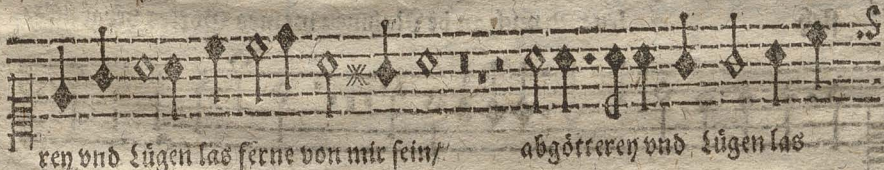 rey vnd Lügen las ferne von mir sein/ abgötterey vnd Lügen las